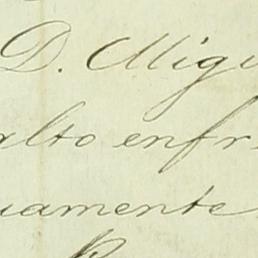 D. Migu
alto enfr
uamente